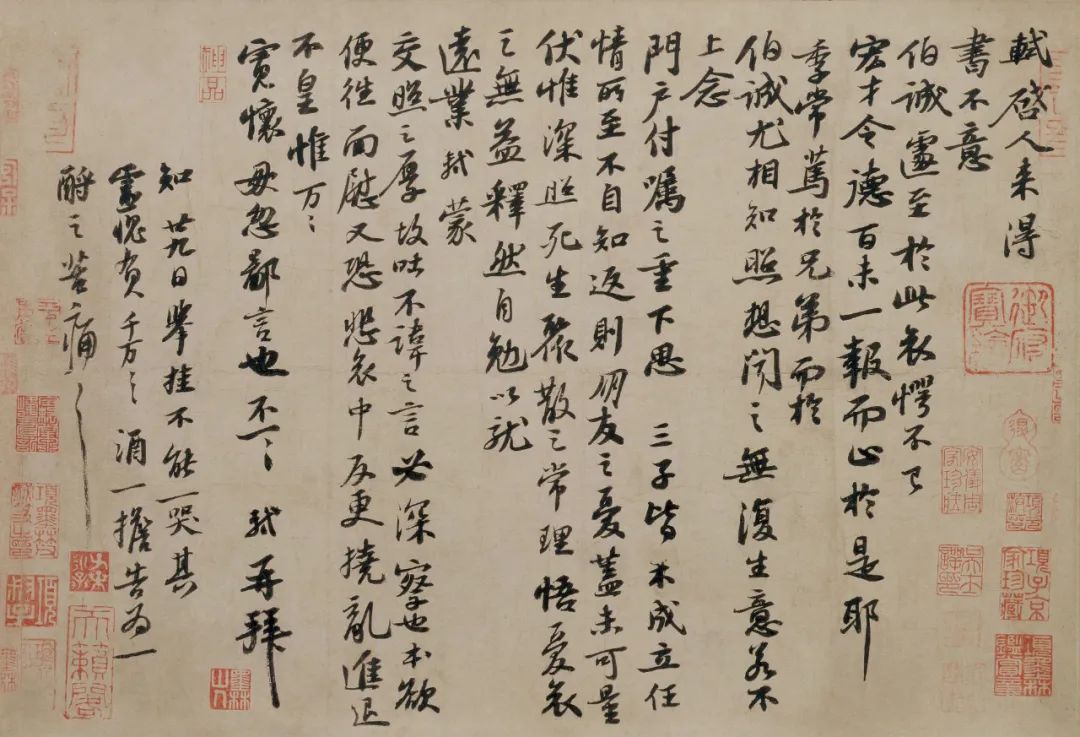 軾啓人来得
書不意
伯誠遽至於此哀愕不已
宏才令德百未一報而止於是耶
季常篤於兄弟而於
伯誠尤相知照想聞之無復生意若不
上念
門户付囑之重下思三子皆未成立任
情所至不自知返則朋友之憂蓋未可量
伏惟深照死生聚散之常理悟憂哀
之無益釋然自勉以就
遠業軾蒙
交照之厚故吐不諱之言必深察也本欲
便往面慰又恐悲哀中反更撓亂進退
不皇惟万々
寬懷毋忽鄙言也不一々軾再拜
知廿九日舉挂不能一哭其
靈愧負千万々酒一擔告為一
酹之苦痛々
神品
御府寶繪
項子京家珍藏
天籟閣